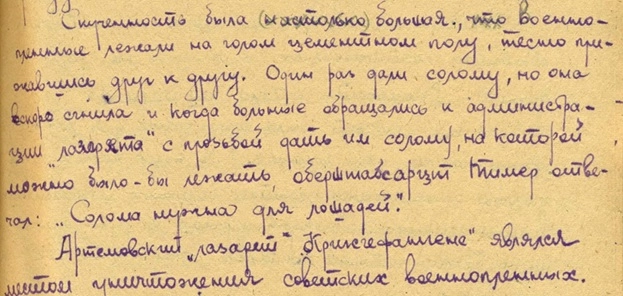 Скученность была (настолько) большая., что военно-
пленные лежали на голом цементном полу, тесно при-
жавшись друг к другу. Один раз дали солому, но она
вскоре сгнила и когда больные обращались к администра-
ции „лазарета" с прозьбой дать им солому, на которой
можно было-бы лежать, оберштабсарцт Тимер отве-
чал: „Солома нужна для лошадей".
Артемовский „лазарет" Кригсгефангене" являлся
местом уничтожения советских военнопленных.